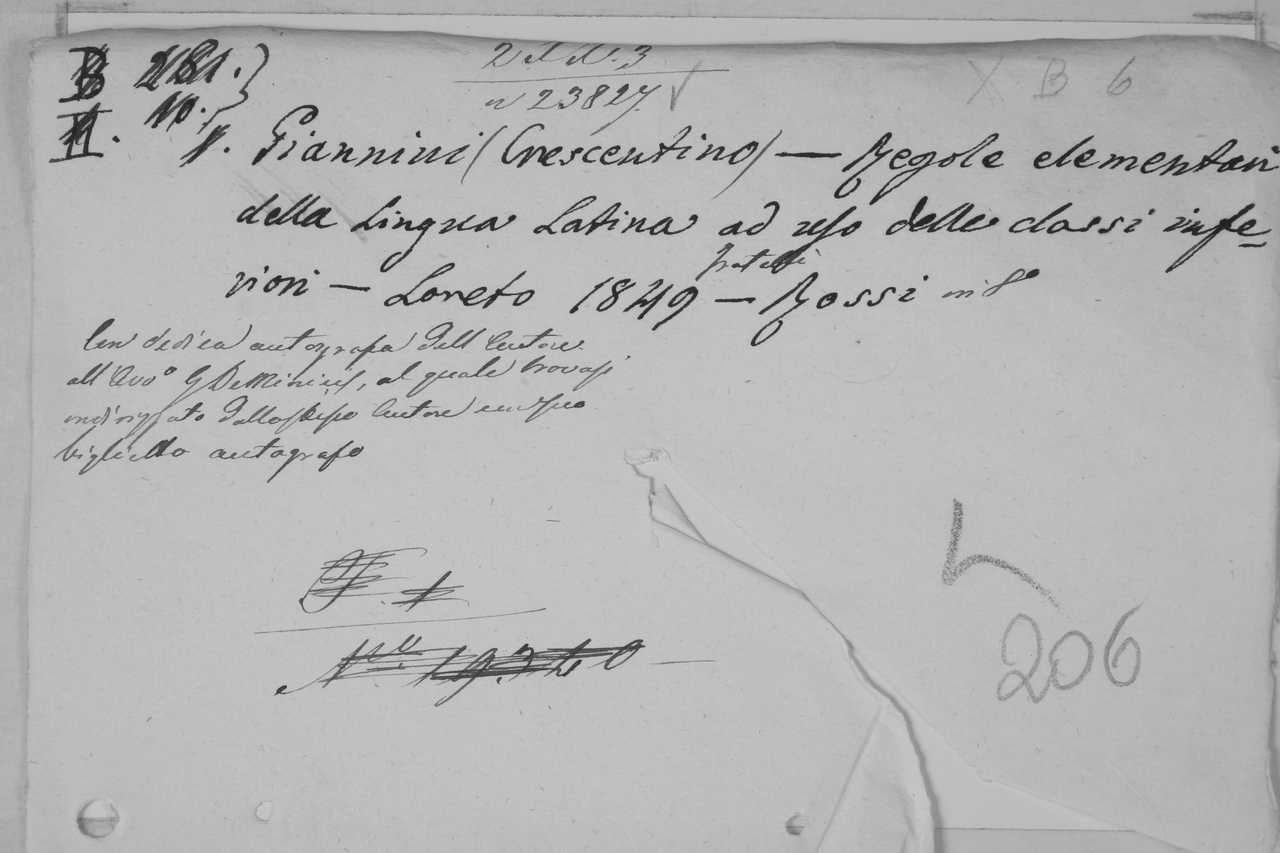 n 23827
X B 6
Giannini (Crescentino) — Regole elementari
della Lingua Latina ad uso delle classi infe-
riori — Loreto 1849 — fratelli Rossi in 8°
Con dedica autografa dell'Autore
all'Avv° G De Minicis, al quale trovasi
indirizzato dallo stesso Autore
biglietto autografo
N.° 19340
206